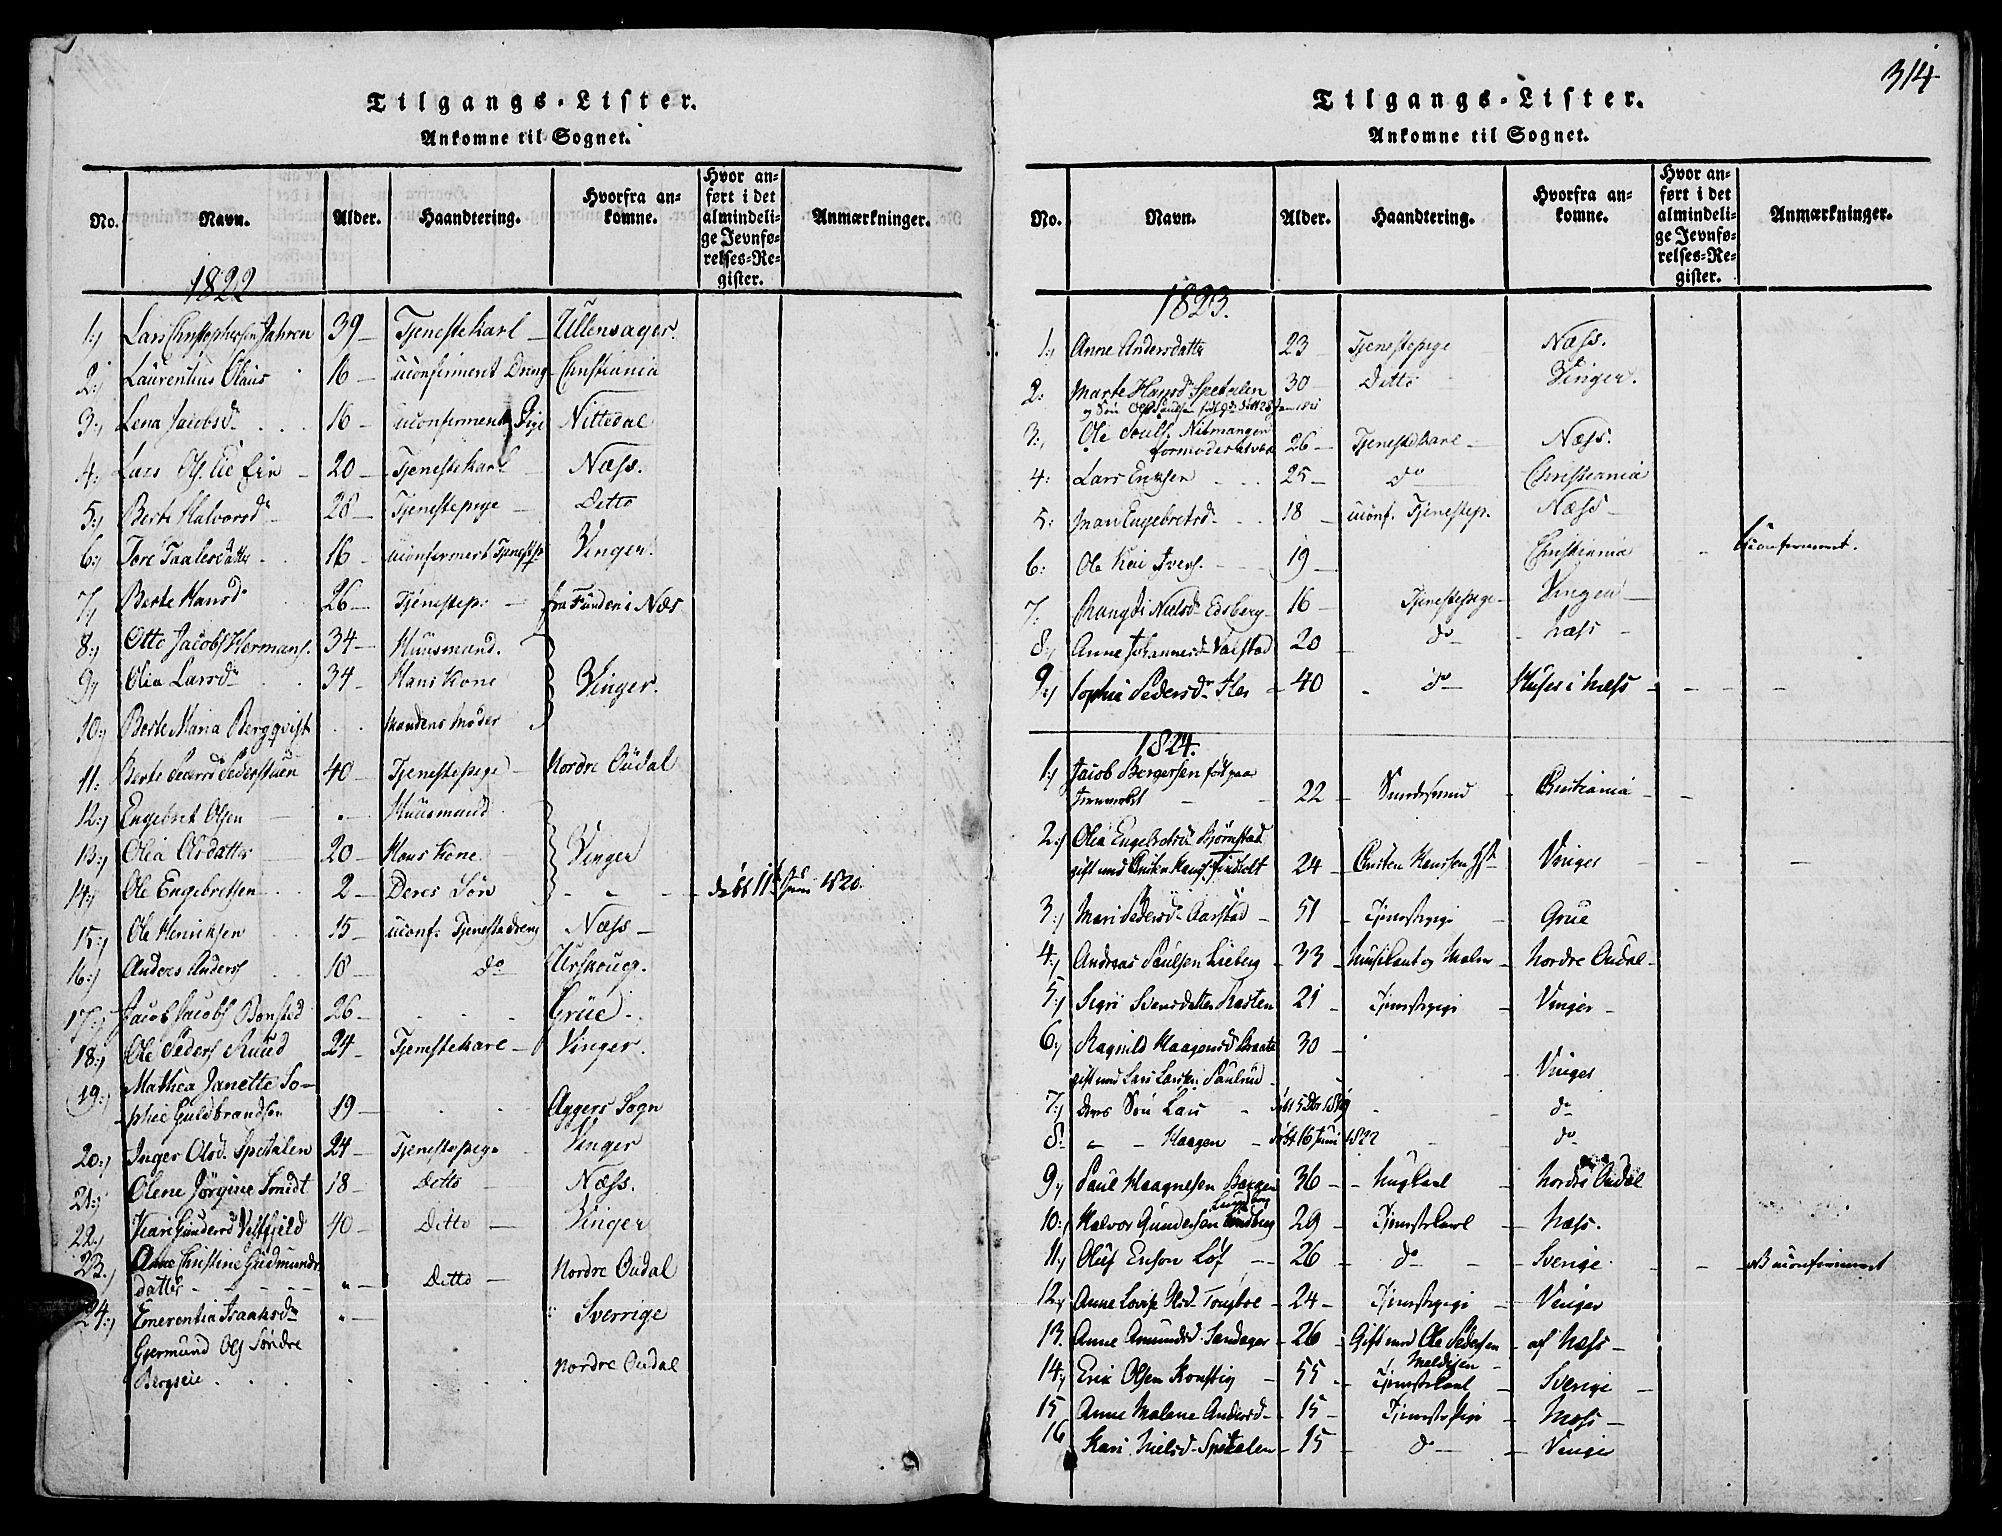 Tilgangs-Lister.
Ankomne til Sognet.
No. Navn. Alder. Haandtering. Hvorfra an-komne. Hvor an-ført i det almindeli-ge Jevnfø-relses-Re-gister. Anmærkninger.
1822
1:) Lars Christophersen Jahren 39 — Tjenestekarl — Ullensager.
2:) Laurentius Olaus 16 — uconfirmert Dreng — Christiania
3:) Lena Jacobsdr . . . 16 — uconfirmert Pige Nittedal
4:) Lars Ols Lie Ein — 20 — Tjenestekarl — Næss.
5:) Berte Halvorsdr — 28 — Tjenestepige — Ditto
6:) Tore Taalesdatter — 16 — uconfirmert Tjenestep Vinger.
7:) Berte Hansdr 26 — Tjenestep: — fra Funden i Næs
8:) Otto Jacobs Hermans. 34 — Huusmand.
9:) Olia Larsdr . 34 — Hans Kone Vinger.
10:) Berte Maria Bergqvist . . Mandens Moder
11: Berte Pedersd Pederstuen 40 — Tjenestepige — Nordre Oudal
12:) Engebret Olsen — . — Huusmand
13:) Olia Olsdatter 20 — Hans Kone Vinger
14:) Ole Engebretsen — 2 — Deres Søn — — — døbt 11te Juni 1820.
15:) Ole Henriksen 15 — uconf. Tjenestedreng Næss —
16:) Anders Anders 18 — do Urskoug.
17:) Jacob Jacobs Bonsted 26 — . . Grue —
18:) Ole Peders Ruud 24 — Tjenestekarl — Vinger.
19:) Mathea Janette So-
phie Guldbrandsen 19 — . . Aggers Sogn
20:) Inger Olsd. Spetalen 24 — Tjenestepige Vinger
21:) Olene Jörgine Smidt 18 — Ditto — Næss.
22:) Kari Gundersd Vestfjeld 40 — Ditto — Vinger
23:) Anne Christine Gudmunds
datter — — — " — Ditto — Nordre Oudal
24:) Emerentia Isaaksdr " — " Sverrige
Gjermund Ols Söndre
Bergseie . . . . . Nordre Oudal
314
Tilgangs-Lister.
Ankomne til Sognet.
No. Navn. Alder. Haandtering. Hvorfra an-komne. Hvor an-ført i det almindeli-ge Jevnfø-relses-Re-gister. Anmærkninger.
1823.
1:) Anne Andersdatter 23 — Tjenestepige — Næss.
2: Marte Hansd Spetalen 30 — Ditto Vinger.
og Søn Ole Paulsen
3:) Ole Pouls. Nitmangen
26 — Tjenestekarl — Næss.
4: Lars Eriksen . . . 25 — do Christiania
5: Mari Engebretsd . . 18 — uconf. Tjenestep. Næss —
6: Ole Ivers. — 19 — Christiania — Uconfirmert.
7. Rangdi Nielsd Edsberg — 16 — Tjenestepige — Vinger —
8:) Anne Johannesd Valstad 20 — do — Næss —
9:) Sophia Pedersdr — 40 — do — i Næss — — —
1824.
1:) Jacob Bergersen født paa
— 22 — — Christiania — —
2:) Olia Engebretsd Bjørnstad
gift med Hans. 24 — Hansen — Vinger — —
3:) Mari Pedersd Aarstad — 51 — Tjenestepige — Grue
4:) Andreas Paulsen Lieberg — 33 — Musikant og Maler — Nordre Oudal —
5:) Sigri Svensdatter 21 — Tjenestepige — Vinger —
6:) Ragnild Haagensd Braate 30 —
gift med Lars Larsen Paulsrud — Vinger
7:) deres Søn Lars — født 5 Dbr 1819 — do
8: " — Haagen — født 16 Juni 1822 — do
9:) Paul Haagnesen 36 — — Nordre Oudal
10:) Halvor Gundersen Lundberg 29 — Tjenestekarl — Næss.
11:) Oluf Ericson Löf — 26 — do — Sverige — — NB uconfirmert
12:) Anne Lovise — 24 — Tjenestepige — Vinger
13. Anne Amundsd. Sandager — 26 — Gift med Ole Pedersen — af Næss —
14:) Eric Olsen — 55 — Tjenestekarl — Sverige —
15 Anne Malene Andersd — 15 — Tjenestepige — Næss —
16 Kari Nielsd. Spetalen — 15 — do — Vinger